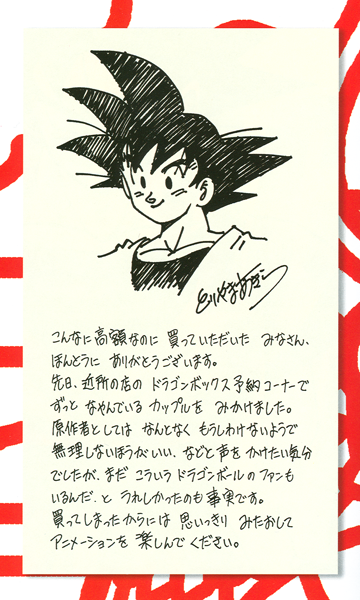 とりやまあきら
こんなに高額なのに 買っていただいた みなさん、
ほんとうに ありがとうございます。
先日、近所の店の ドラゴンボックス予約コーナーで
ずっと なやんでいる カップルを みかけました。
原作者としては なんとなく もうしわけないようで
無理しないほうがいい、などと声をかけたい気分
でしたが、まだ こういう ドラゴンボールのファンも
いるんだ、と うれしかったのも 事実です。
買ってしまったからには 思いっきり みたおして
アニメーションを 楽しんで ください。